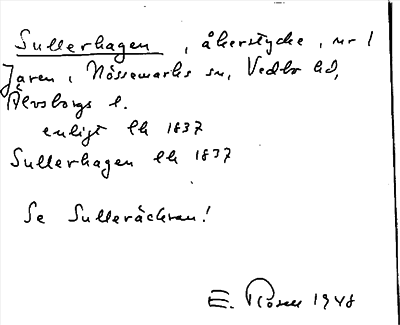 Sullerhagen, åkerstycke, nr 1
Jaren, Nössemarks sn, Vedbo hd,
Älvsborgs l.
enligt lh 1837
Sullerhagen lh 1837
Se Sulleråckran!
E. Rosell 1948